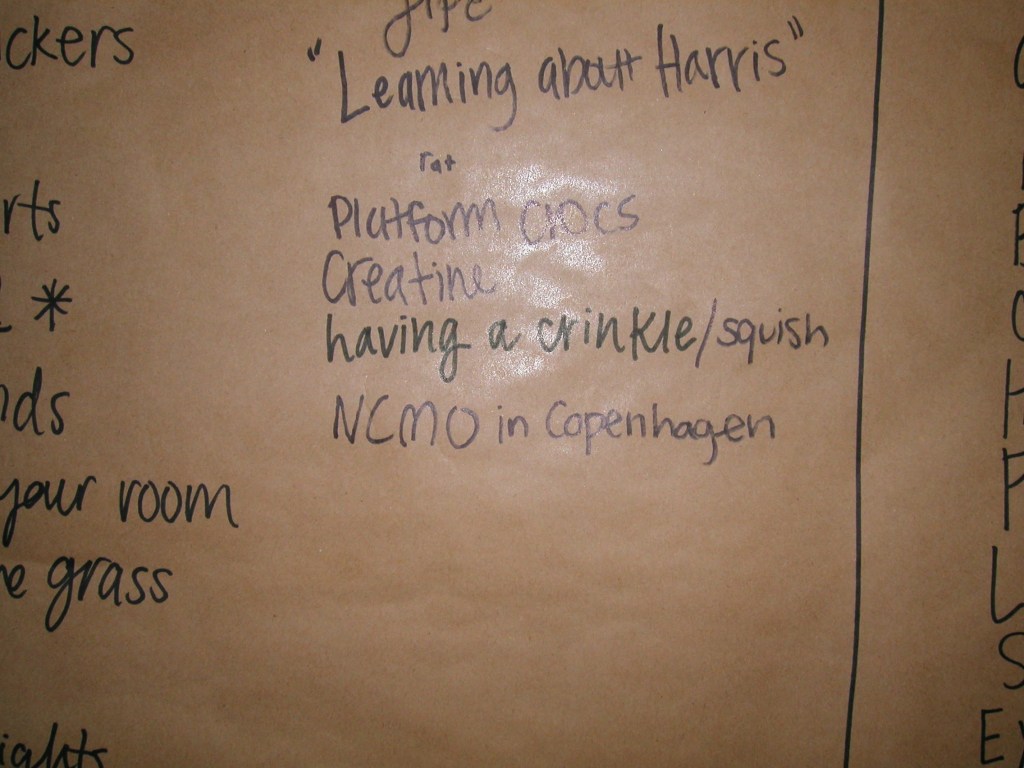 "Learning about Harris"
rat
Platform crocs
Creatine
having a crinkle/squish
NCMO in Copenhagen
ckers
rts
*
nds
your room
e grass
ights